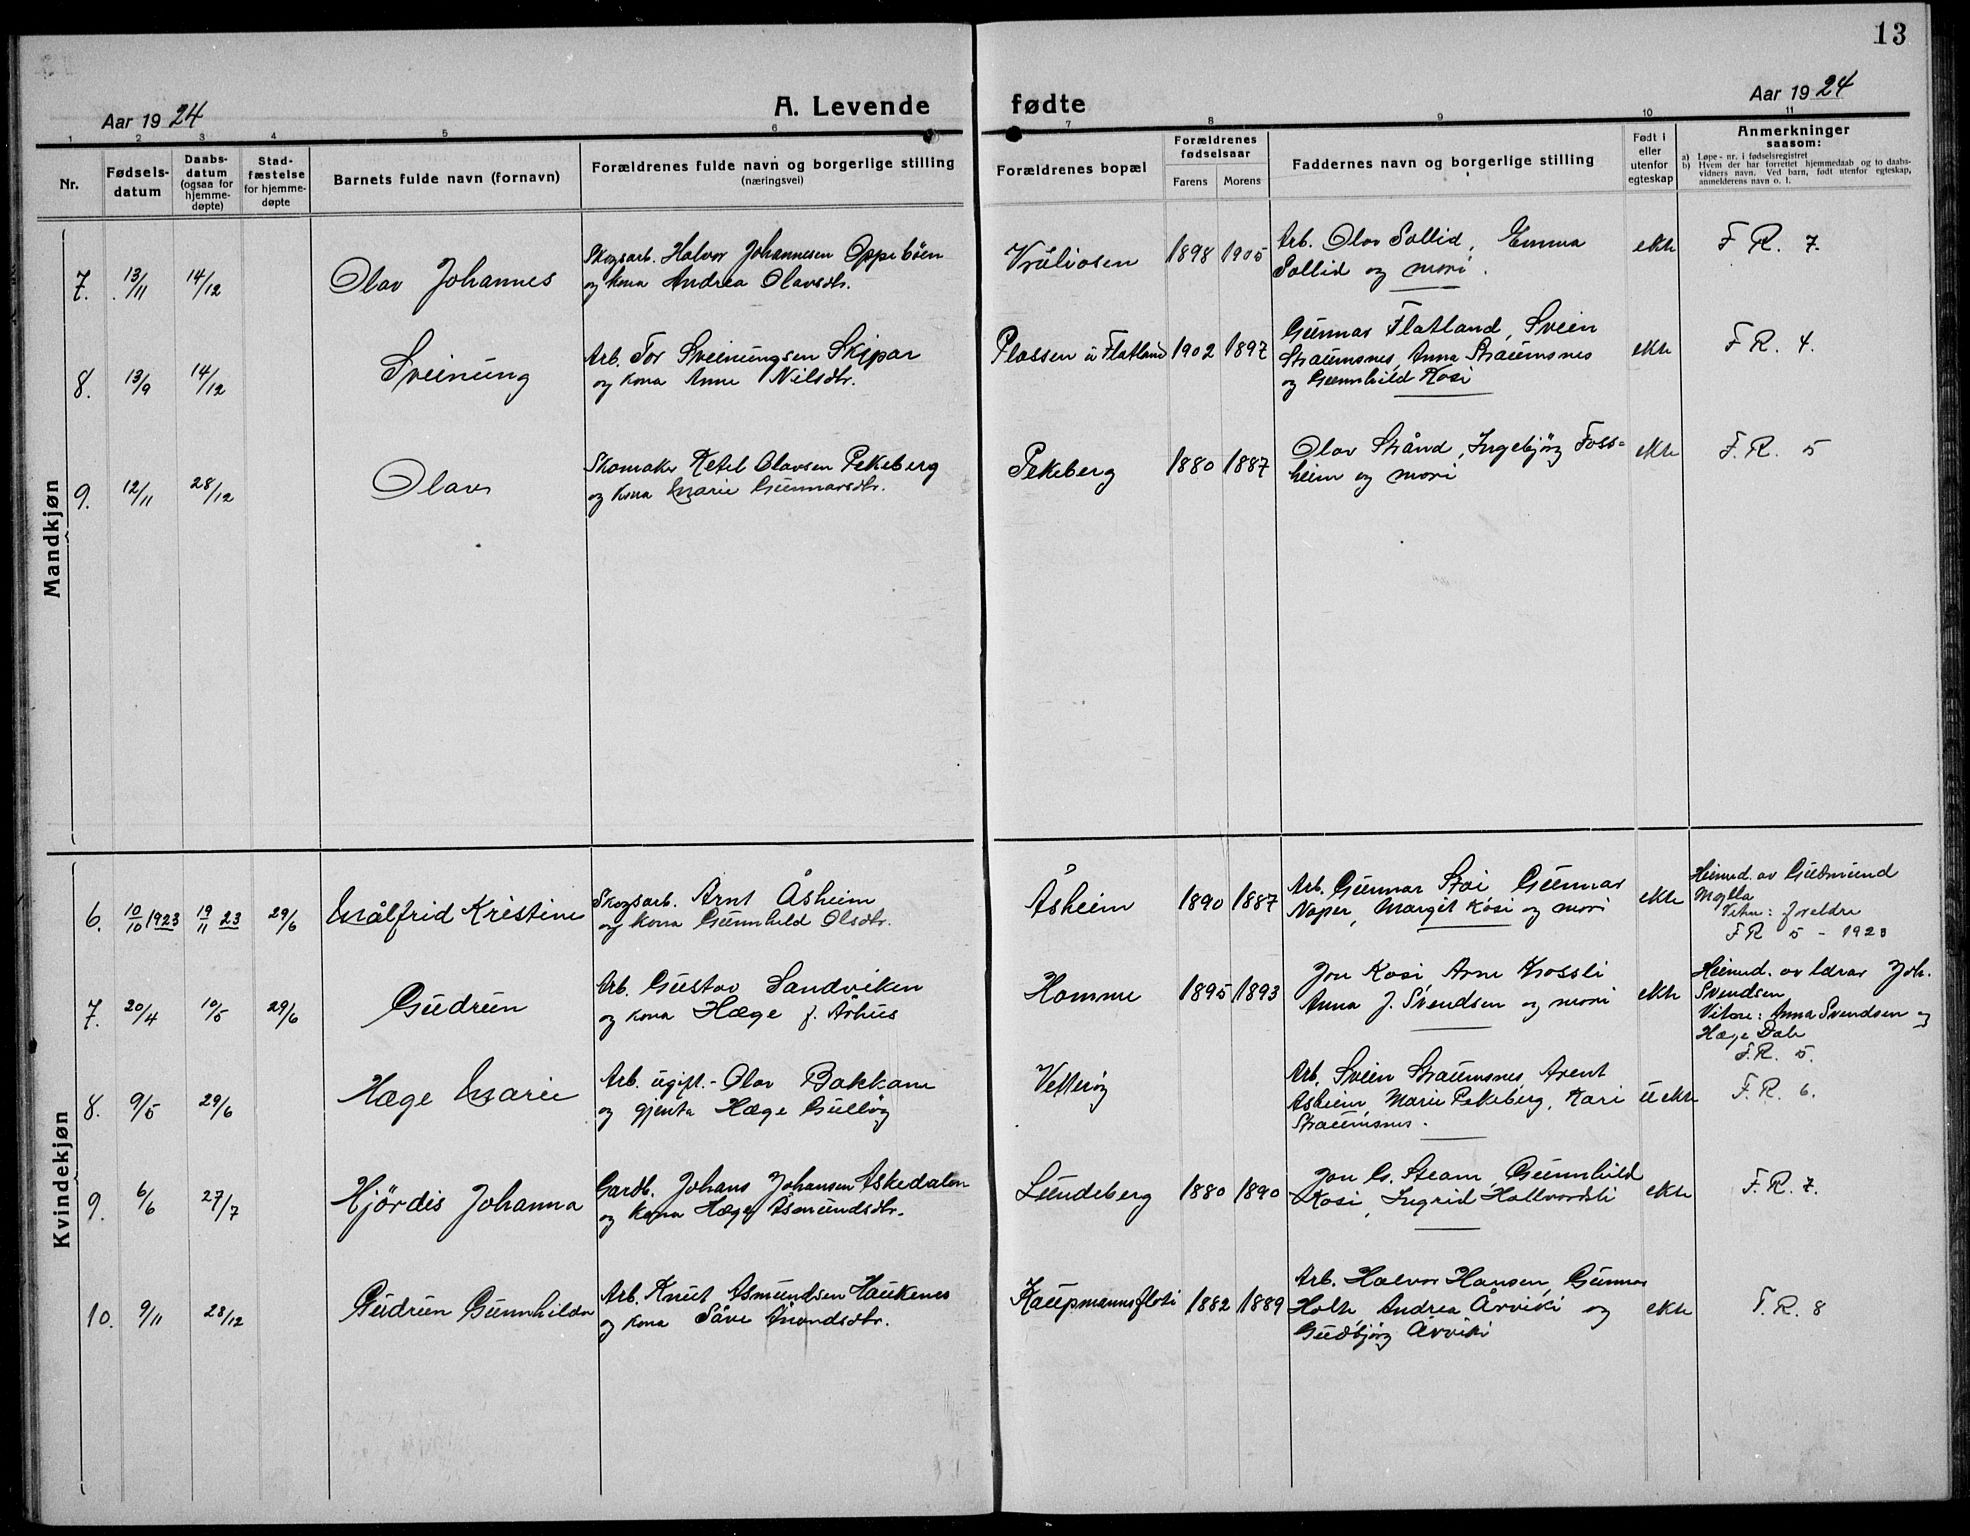 13
Aar 1924
A. Levende fødte
Aar 1924
1 2 3 4 5 6 7 8 9 10 11
Nr.
Fødsels-
datum
Daabs-
datum
(ogsaa for
hjemme-
døpte)
Stad-
fæstelse
for hjemme-
døpte
Barnets fulde navn (fornavn)
Forældrenes fulde navn og borgerlige stilling
(næringsvei)
Forældrenes bopæl
Forældrenes
fødselsaar
Farens Morens
Faddernes navn og borgerlige stilling
Født i
eller
utenfor
egteskap
Anmerkninger
saasom:
a) Løpe-nr. i fødselsregistret
b) Hvem der har forrettet hjemmedaab og to daabs-
vidners navn. Ved barn, født utenfor egteskap,
anmelderens navn o. l.
Mandkjøn
7. 13/11 14/12 Olav Johannes
Skogsarb. Halvor Johannesen Oppebøen
og kona Andrea Olavsdtr.
Vråliosen 1898 1905
Arb. Olav Sollid, Emma
Sollid og mori.
ekte F. R. 7.
8. 13/9 14/12 Sveinung
Arb. Tor Sveinungsen Skjpar
og kona Anne Nilsdtr.
Plassen u Flatland 1902 1897
Gunnar Flatland, Svein
Straumsnes, Anna Straumsnes
og Gunnhild Kosi
ekte F. R. 4.
9. 12/11 28/12 Olav
Skomaker Ketel Olavsen Pekeberg
og kona Marie Gunnarsdtr.
Pekeberg 1880 1887
Olav Strånd, Ingebjörg Foss=
heim og mori
ekte F. R. 5
Kvindekjøn
6. 10/10 1923 19/11 23 29/6 Målfrid Kristine
Skogsarb. Arnt Åsheim
og kona Gunnhild Olsdtr.
Åsheim 1890 1887
Arb. Gunnar Stoi Gunnar
Naper, Margit Kosi og mori
ekte
Heimd. av Gudmund
Mogla
Vitne: foreldre
F R 5 - 1923
7. 20/4 10/5 29/6 Gudrun
Arb. Gustav Sandviken
og kona Hæge f. Århus
Homme 1895 1893
Jon Kosi Arne Krossli
Anna J. Svendsen og mori
ekte
Heimd. av lærar Joh.
Svendsen
Vitne: Anna Svendsen og
Hæge Dale
F. R. 5.
8. 9/5 29/6 Hæge Marie
Arb. ugift.- Olav Bakkane
og gjenta Hæge Gulløy
Vetterøy
Arb. Svein Straumsnes, Arent
Åsheim, Marie Pekeberg, Kari
Straumsnes.
uekte F. R. 6.
9. 6/6 27/7 Hjördis Johanna
Gardb. Johans Johansen Askedalen
og kona Hæge Åsmundsdtr.
Lundeberg 1880 1890
Jon G. Steam, Gunnhild
Kosi, Ingrid Hallvordsli
ekte F. R. 7.
10. 9/11 28/12 Gudrun Gunnhilda
Arb. Knut Asmundsen Haukenes
og kona Såve Åvondsdtr.
Kaupmannsfloti 1882 1889
Arb. Halvor Hansen, Gunnar
Holte, Andrea Årviki og
Gudbjörg Årviki
ekte F. R. 8